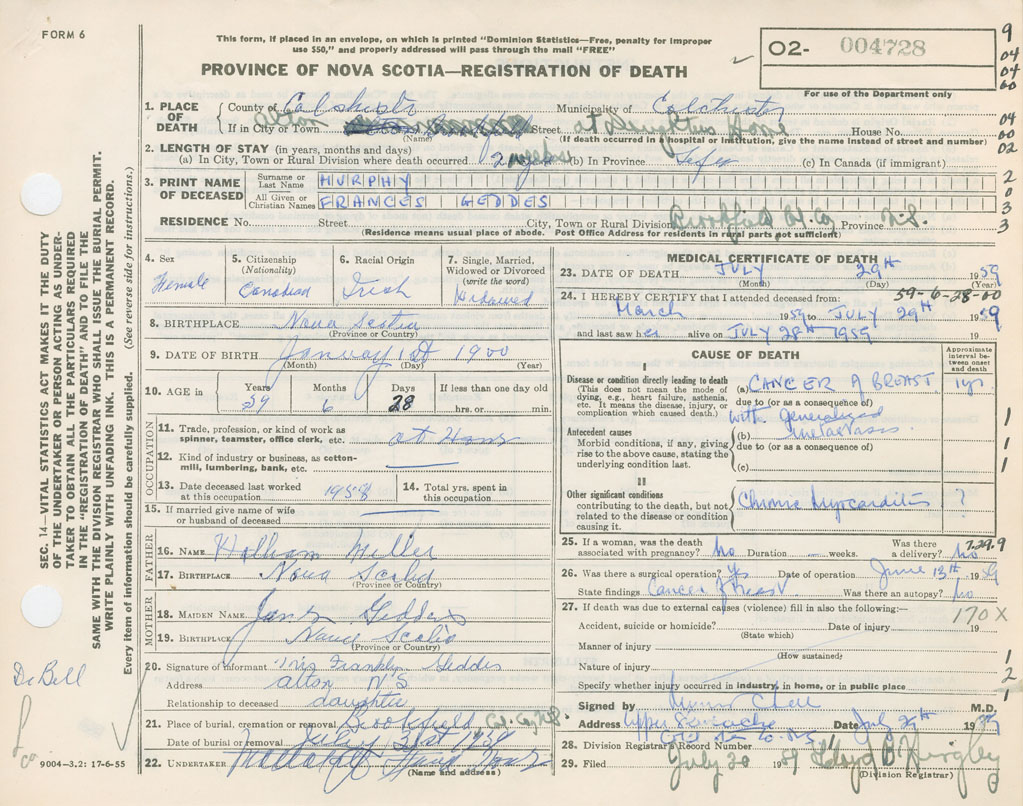 FORM 6
This form, if placed in an envelope, on which is printed "Dominion Statistics—Free, penalty for improper
use $50," and properly addressed will pass through the mail "FREE"
PROVINCE OF NOVA SCOTIA—REGISTRATION OF DEATH
O2- 004728
For use of the Department only
9
04
04
00
04
00
02
2
0
3
3
SEC. 14—VITAL STATISTICS ACT MAKES IT THE DUTY
OF THE UNDERTAKER OR PERSON ACTING AS UNDER-
TAKER TO OBTAIN ALL THE PARTICULARS REQUIRED
IN THE "REGISTRATION OF DEATH" AND TO FILE THE
SAME WITH THE DIVISION REGISTRAR WHO SHALL ISSUE THE BURIAL PERMIT.
WRITE PLAINLY WITH UNFADING INK. THIS IS A PERMANENT RECORD.
Every item of information should be carefully supplied. (See reverse side for instructions.)
1. PLACE OF DEATH
County of Colchester Municipality of Colchester
If in City or Town Alton Street at House No.
(Name) (If death occurred in a hospital or institution, give the name instead of street and number)
2. LENGTH OF STAY (in years, months and days)
(a) In City, Town or Rural Division where death occurred 2 (b) In Province Life (c) In Canada (if immigrant)
3. PRINT NAME OF DECEASED
Surname or Last Name MURPHY
All Given or Christian Names FRANCES GEDDES
RESIDENCE No. Street City, Town or Rural Division Brookfield Province N.S.
(Residence means usual place of abode. Post Office Address for residents in rural parts not sufficient)
4. Sex Female
5. Citizenship (Nationality) Canadian
6. Racial Origin Irish
7. Single, Married, Widowed or Divorced (write the word) Widowed
8. BIRTHPLACE Nova Scotia
(Province or Country)
9. DATE OF BIRTH January 1st 1900
(Month) (Day) (Year)
10. AGE in Years 59 Months 6 Days 28 If less than one day old hrs. or min.
OCCUPATION
11. Trade, profession, or kind of work as spinner, teamster, office clerk, etc. at Home
12. Kind of industry or business, as cotton-mill, lumbering, bank, etc.
13. Date deceased last worked at this occupation 1958
14. Total yrs. spent in this occupation
15. If married give name of wife or husband of deceased
FATHER
16. NAME William Miller
17. BIRTHPLACE Nova Scotia
(Province or Country)
MOTHER
18. MAIDEN NAME Geddes
19. BIRTHPLACE Nova Scotia
(Province or Country)
20. Signature of informant Franklyn Geddes
Address Alton N S
Relationship to deceased daughter
21. Place of burial, cremation or removal Brookfield, Col. Co. N.S.
Date of burial or removal July 31st 1959
22. UNDERTAKER
(Name and address)
MEDICAL CERTIFICATE OF DEATH
23. DATE OF DEATH JULY 29th 1959
(Month) (Day) (Year)
59-6-28-00
24. I HEREBY CERTIFY that I attended deceased from:
March 1959 to JULY 29th 1959
and last saw her alive on JULY 28th 1959
CAUSE OF DEATH
Approximate interval between onset and death
I
Disease or condition directly leading to death
(This does not mean the mode of dying, e.g., heart failure, asthenia, etc. It means the disease, injury, or complication which caused death.)
(a) CANCER of BREAST 1 yr.
due to (or as a consequence of)
with Generalized
(b) metastasis.
due to (or as a consequence of)
(c)
Antecedent causes
Morbid conditions, if any, giving rise to the above cause, stating the underlying condition last.
II
Other significant conditions
contributing to the death, but not related to the disease or condition causing it.
Chronic Myocarditis ?
25. If a woman, was the death associated with pregnancy? No Duration weeks. Was there a delivery? No
7.29.9
26. Was there a surgical operation? Yes Date of operation June 13th 1959
State findings Cancer of Breast Was there an autopsy? No
27. If death was due to external causes (violence) fill in also the following:—
170X
Accident, suicide or homicide? Date of injury 19
(State which)
Manner of injury
(How sustained)
Nature of injury
Specify whether injury occurred in industry, in home, or in public place
Signed by M.D.
Address Upper Date July 29th 1959
28. Division Registrar's Record Number
29. Filed July 59 Lloyd B
(Division Registrar)
1
1
1
1
2
1
9004-3,2: 17-6-55